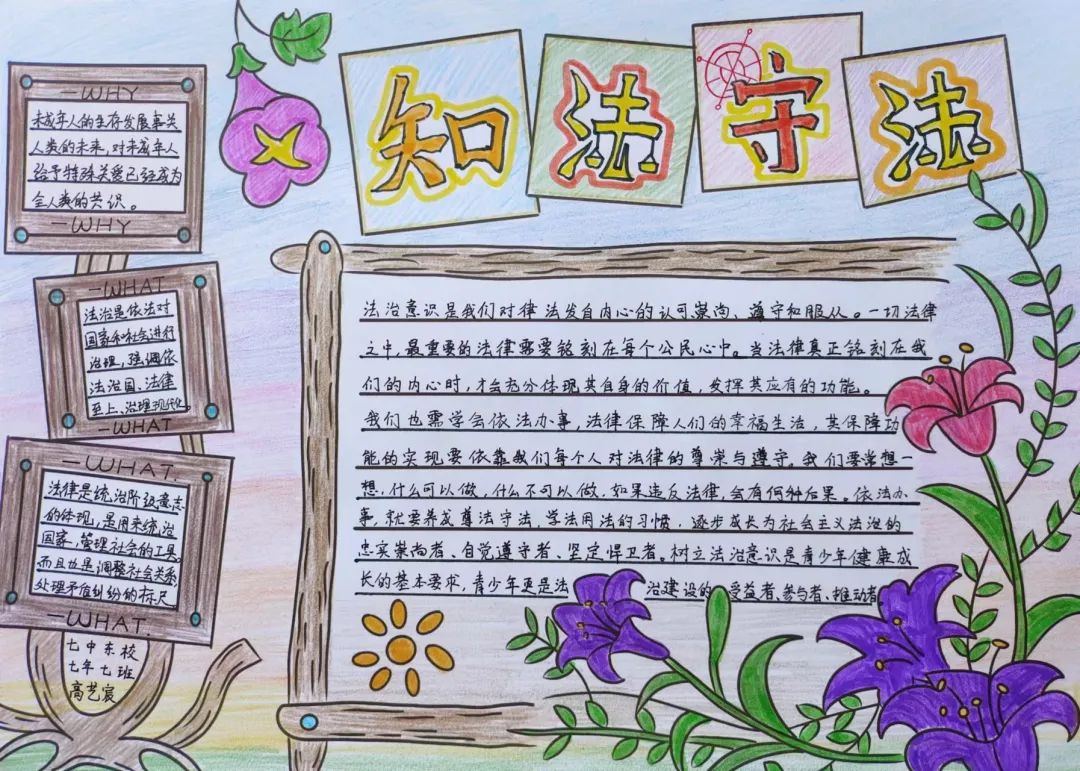 知法守法
-WHY
未成年人的生存发展事关
人类的未来,对未成年人
给予特殊关爱已经成为
全人类的共识。
-WHY
-WHAT
法治是依法对
国家和社会进行
治理,强调依
法治国、法律
至上、治理现代化。
-WHAT
-WHAT.
法律是统治阶级意志
的体现,是用来统治
国家,管理社会的工具
而且也是调整社会关系,
处理矛盾纠纷的标尺
-WHAT.
七中东校
七年七班
高艺宸
法治意识是我们对律法发自内心的认可崇尚、遵守和服从。一切法律
之中,最重要的法律需要铭刻在每个公民心中。当法律真正铭刻在我
们的内心时,才会充分体现其自身的价值,发挥其应有的功能。
我们也需学会依法办事,法律保障人们的幸福生活,其保障功
能的实现要依靠我们每个人对法律的尊崇与遵守。我们要常想一
想,什么可以做,什么不可以做,如果违反法律,会有何种后果。依法办
事,就要养成尊法守法,学法用法的习惯,逐步成长为社会主义法治的
忠实崇尚者、自觉遵守者、坚定捍卫者。树立法治意识是青少年健康成
长的基本要求,青少年更是法治建设的受益者、参与者、推动者